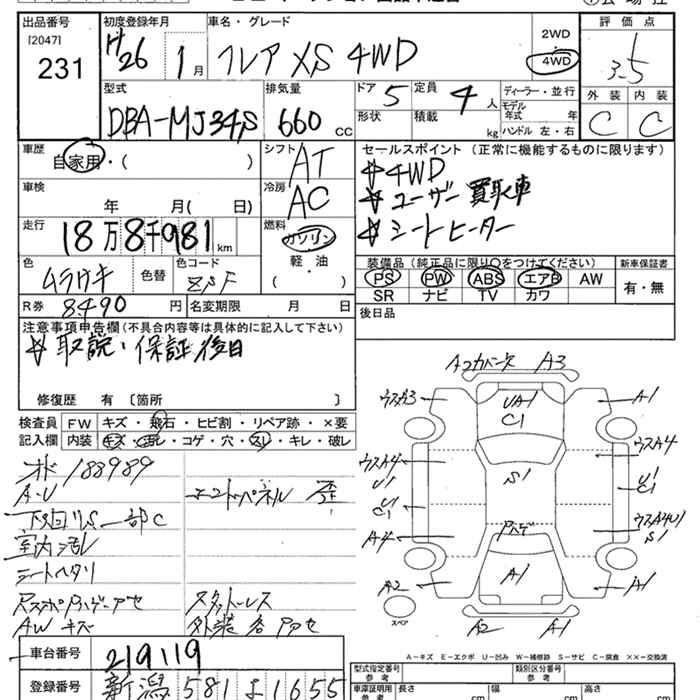 出品番号 初度登録年月 車名・グレード 評価点
[2047]
231 H26 1月 フレア XS 4WD 2WD 4WD 3.5
型式 排気量 ドア 定員 ディーラー・並行 外装 内装
DBA-MJ34S 660 CC 5 4人 モデル年式 年 C C
形状 積載 kg ハンドル 左・右
車歴 シフト セールスポイント (正常に機能するものに限ります)
自家用・( ) AT 4WD
車検 冷房 ユーザー買取車
年 月( 日) AC シートヒーター
走行 燃料
18万8千981km ガソリン 装備品 (純正品に限り○をつけてください) 新車保証書
色 色替 色コード 軽・油 PS PW ABS エアB AW 有・無
ムラサキ ZPF ( ・ ) SR ナビ TV カワ
R券 8490円 名変期限 月 日 後日品
注意事項申告欄(不具合内容等は具体的に記入して下さい)
取説・保証後日
修復歴 有 〔箇所 〕
検査員 FW キズ・飛石・ヒビ割・リペア跡・×要
記入欄 内装 キズ・コゲ・穴・スレ・キレ・破レ
オド 188989
A・U エンドパネル 歪
下回りS 一部C
室内汚レ
シートヘタリ
スタットレス
AWキズ 外装各アセ
車台番号 219119
登録番号 新潟 581 よ 1655
A2 カバー欠 A3
ウスA3 UA1 C1 A1
ウスA4 U1 S1 ウスA4
U1 C1 U1 C1
A4 ウスA4U1 S1
A2 A1 A1
スペア A2 A1
A-キズ E-エクボ U-凹み W-補修跡 S-サビ C-腐食 ××-交換済
型式指定番号 参考 類別区分番号 参考
車庫証明用 参考 長さ 幅 高さ